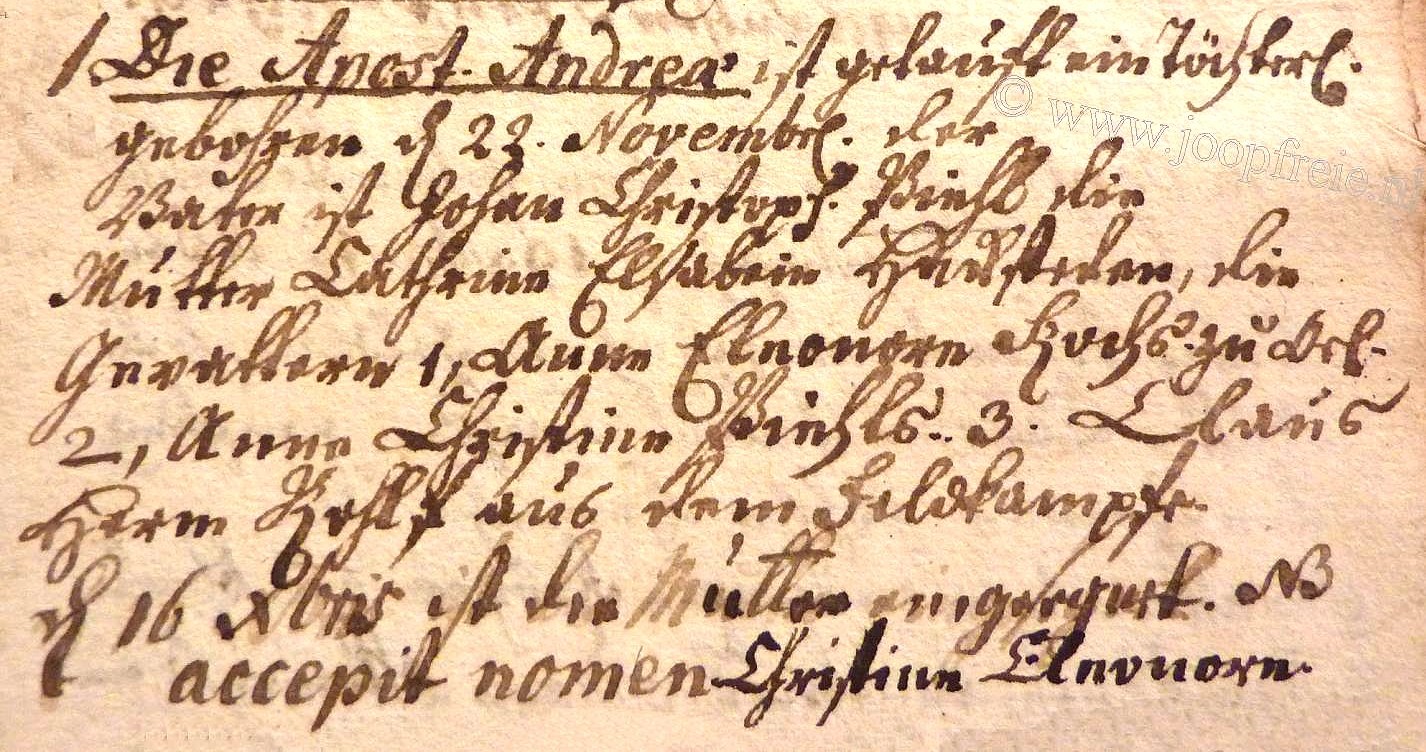 1. Die Apost. Andreæ ist getauft ein Töchterl.
gebohren d 22. Novembr. der
Vater ist Johan Christoph. Piehl die
Mutter Cathrine Elsabein, die
Gevattern 1, Anne Eleonore Kochs. zu
2, Anne Christine Piehls. 3. Claus
Herm aus dem Feldkampfe.
d 16 Xbris ist die Mutter eingesegnet. NB
accepit nomen Christine Eleonore.
© www.joopfreie.n